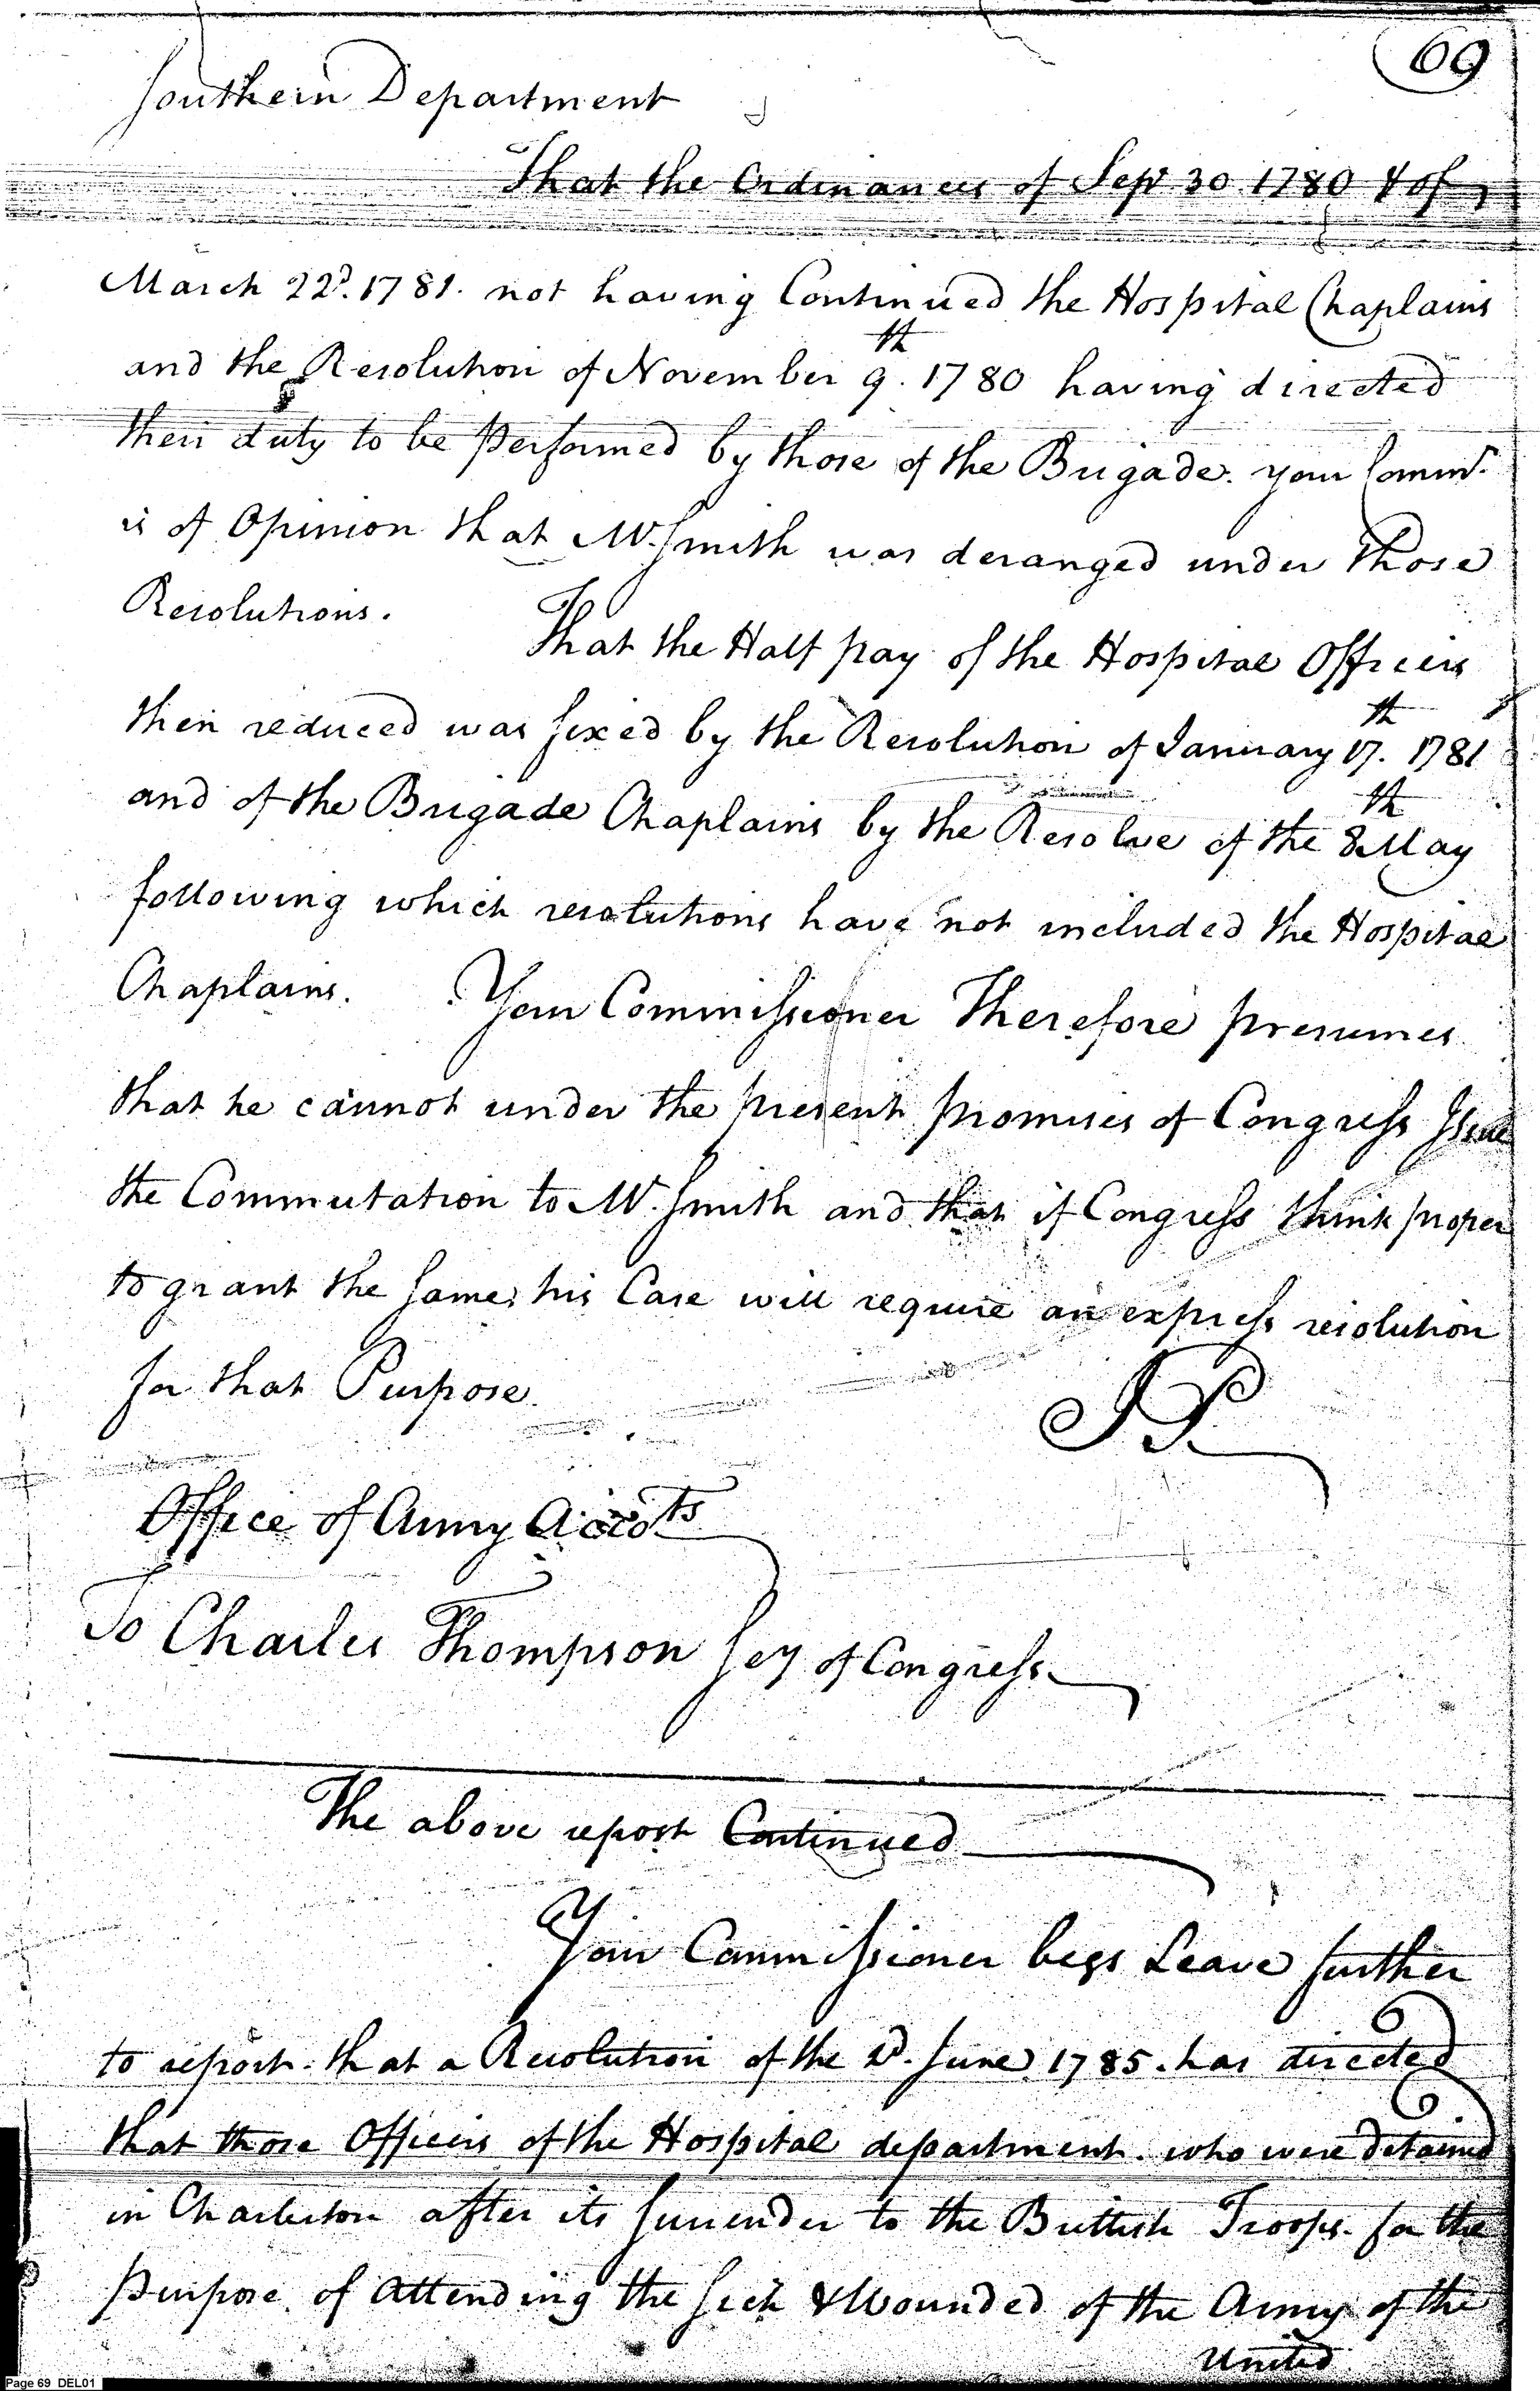 69
Southern Department
That the Ordinances of Sept 30 1780 & of
March 22d. 1781. not having Continued the Hospital Chaplains
and the Resolution of November 9th. 1780 having directed
their duty to be performed by those of the Brigade. your Commr.
is of Opinion that Mr. Smith was deranged under those
Resolutions.
That the Half pay of the Hospital Officers
then reduced was fixed by the Resolution of January 17th. 1781
and of the Brigade Chaplains by the Resolve of the 8th May
following which resolutions have not included the Hospital
Chaplains. Your Commissioner Therefore presumes
that he cannot under the present promises of Congress Issue
the Commutation to Mr. Smith and that if Congress think proper
to grant the Same, his Case will require an express resolution
for that Purpose.
JP
Office of Army Accots
To Charles Thompson Sey of Congress
The above report Continued
Your Commissioner begs Leave further
to report. that a Resolution of the 2d. June 1785. has directed
that those Officers of the Hospital department. who were detained
in Charleston after its Surrender to the Brittish Troops. for the
purpose of attending the Sick & Wounded of the Army of the
United
Page 69 DEL01